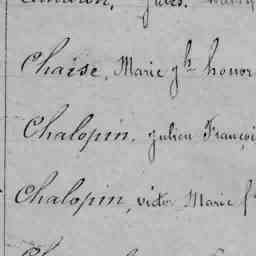 Jules.
Chaise, Marie jh honor
Chalopin, Julien Françoi
Chalopin, victor Marie f